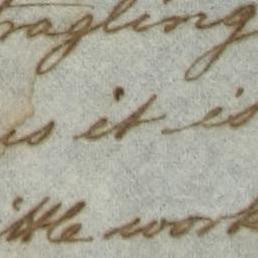 ragling
us it is
ittle work